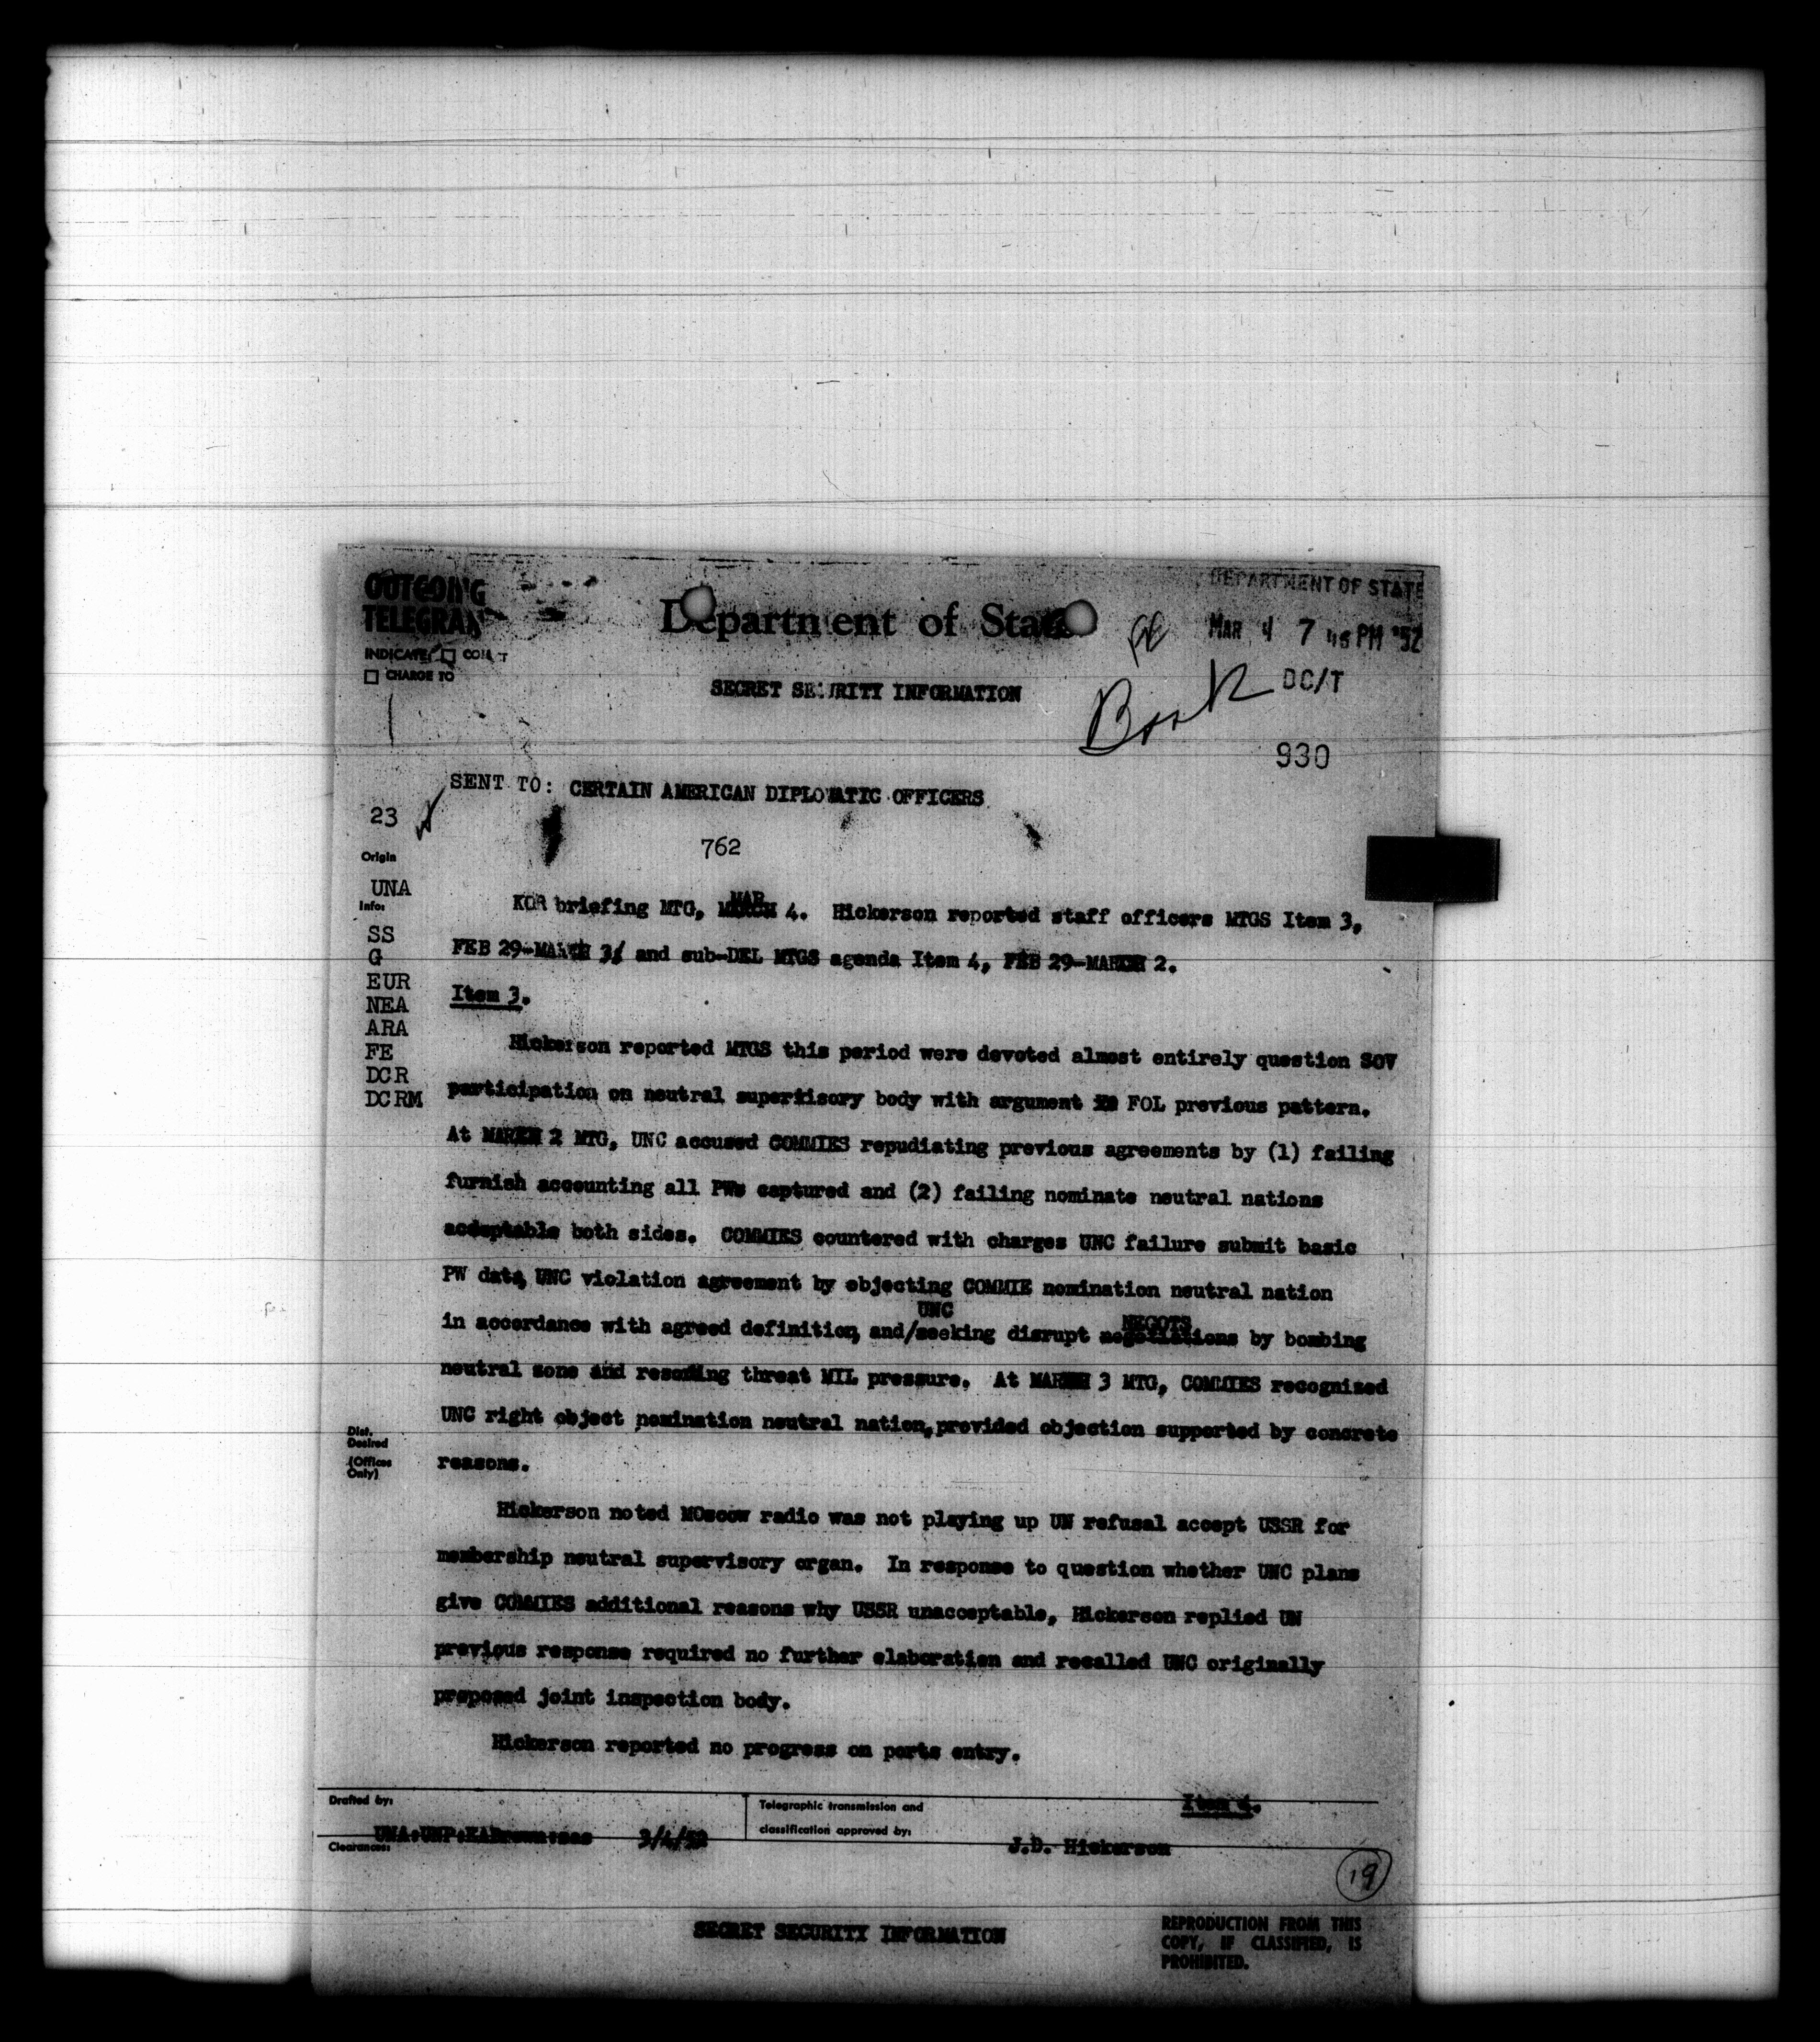 OUTGOING
TELEGRAM
INDICATE: □ COLLECT
□ CHARGE TO
Department of State
DEPARTMENT OF STATE
MAR 4 7 45 PM '52
DC/T
SECRET SECURITY INFORMATION
Book
930
SENT TO: CERTAIN AMERICAN DIPLOMATIC OFFICERS
23
762
Origin
UNA
Info:
SS
G
EUR
NEA
ARA
FE
DCR
DCRM
MAR
KOR briefing MTG, MARCH 4. Hickerson reported staff officers MTGS Item 3,
FEB 29-MARCH 3, and sub-DEL MTGS agenda Item 4, FEB 29-MARCH 2.
Item 3.
Hickerson reported MTGS this period were devoted almost entirely question SOV
participation on neutral supervisory body with argument FOL previous pattern.
At MARCH 2 MTG, UNC accused COMMIES repudiating previous agreements by (1) failing
furnish accounting all PWs captured and (2) failing nominate neutral nations
acceptable both sides. COMMIES countered with charges UNC failure submit basic
PW data, UNC violation agreement by objecting COMMIE nomination neutral nation
UNC NEGOTS
in accordance with agreed definition, and/seeking disrupt negotiations by bombing
neutral zone and resuming threat MIL pressure. At MARCH 3 MTG, COMMIES recognized
UNC right object nomination neutral nation, provided objection supported by concrete
reasons.
Dist.
Desired
(Offices
Only)
Hickerson noted MOscow radio was not playing up UN refusal accept USSR for
membership neutral supervisory organ. In response to question whether UNC plans
give COMMIES additional reasons why USSR unacceptable, Hickerson replied UN
previous response required no further elaboration and recalled UNC originally
proposed joint inspection body.
Hickerson reported no progress on ports entry.
Item 4.
Drafted by:
UNA:UNP:EABrown:mes 3/4/52
Telegraphic transmission and
classification approved by:
J.D. Hickerson
Clearances:
19
SECRET SECURITY INFORMATION
REPRODUCTION FROM THIS
COPY, IF CLASSIFIED, IS
PROHIBITED.